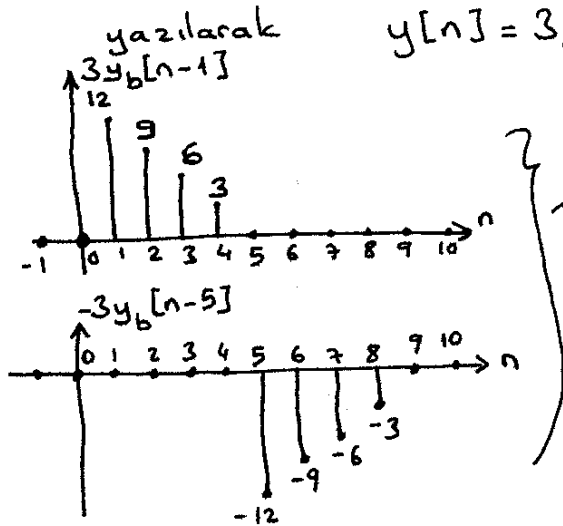 yazılarak
y[n] = 3
3y_b[n-1]
12
9
6
3
n
-1 0 1 2 3 4 5 6 7 8 9 10
-3y_b[n-5]
0 1 2 3 4 5 6 7 8 9 10
n
-3
-6
-9
-12